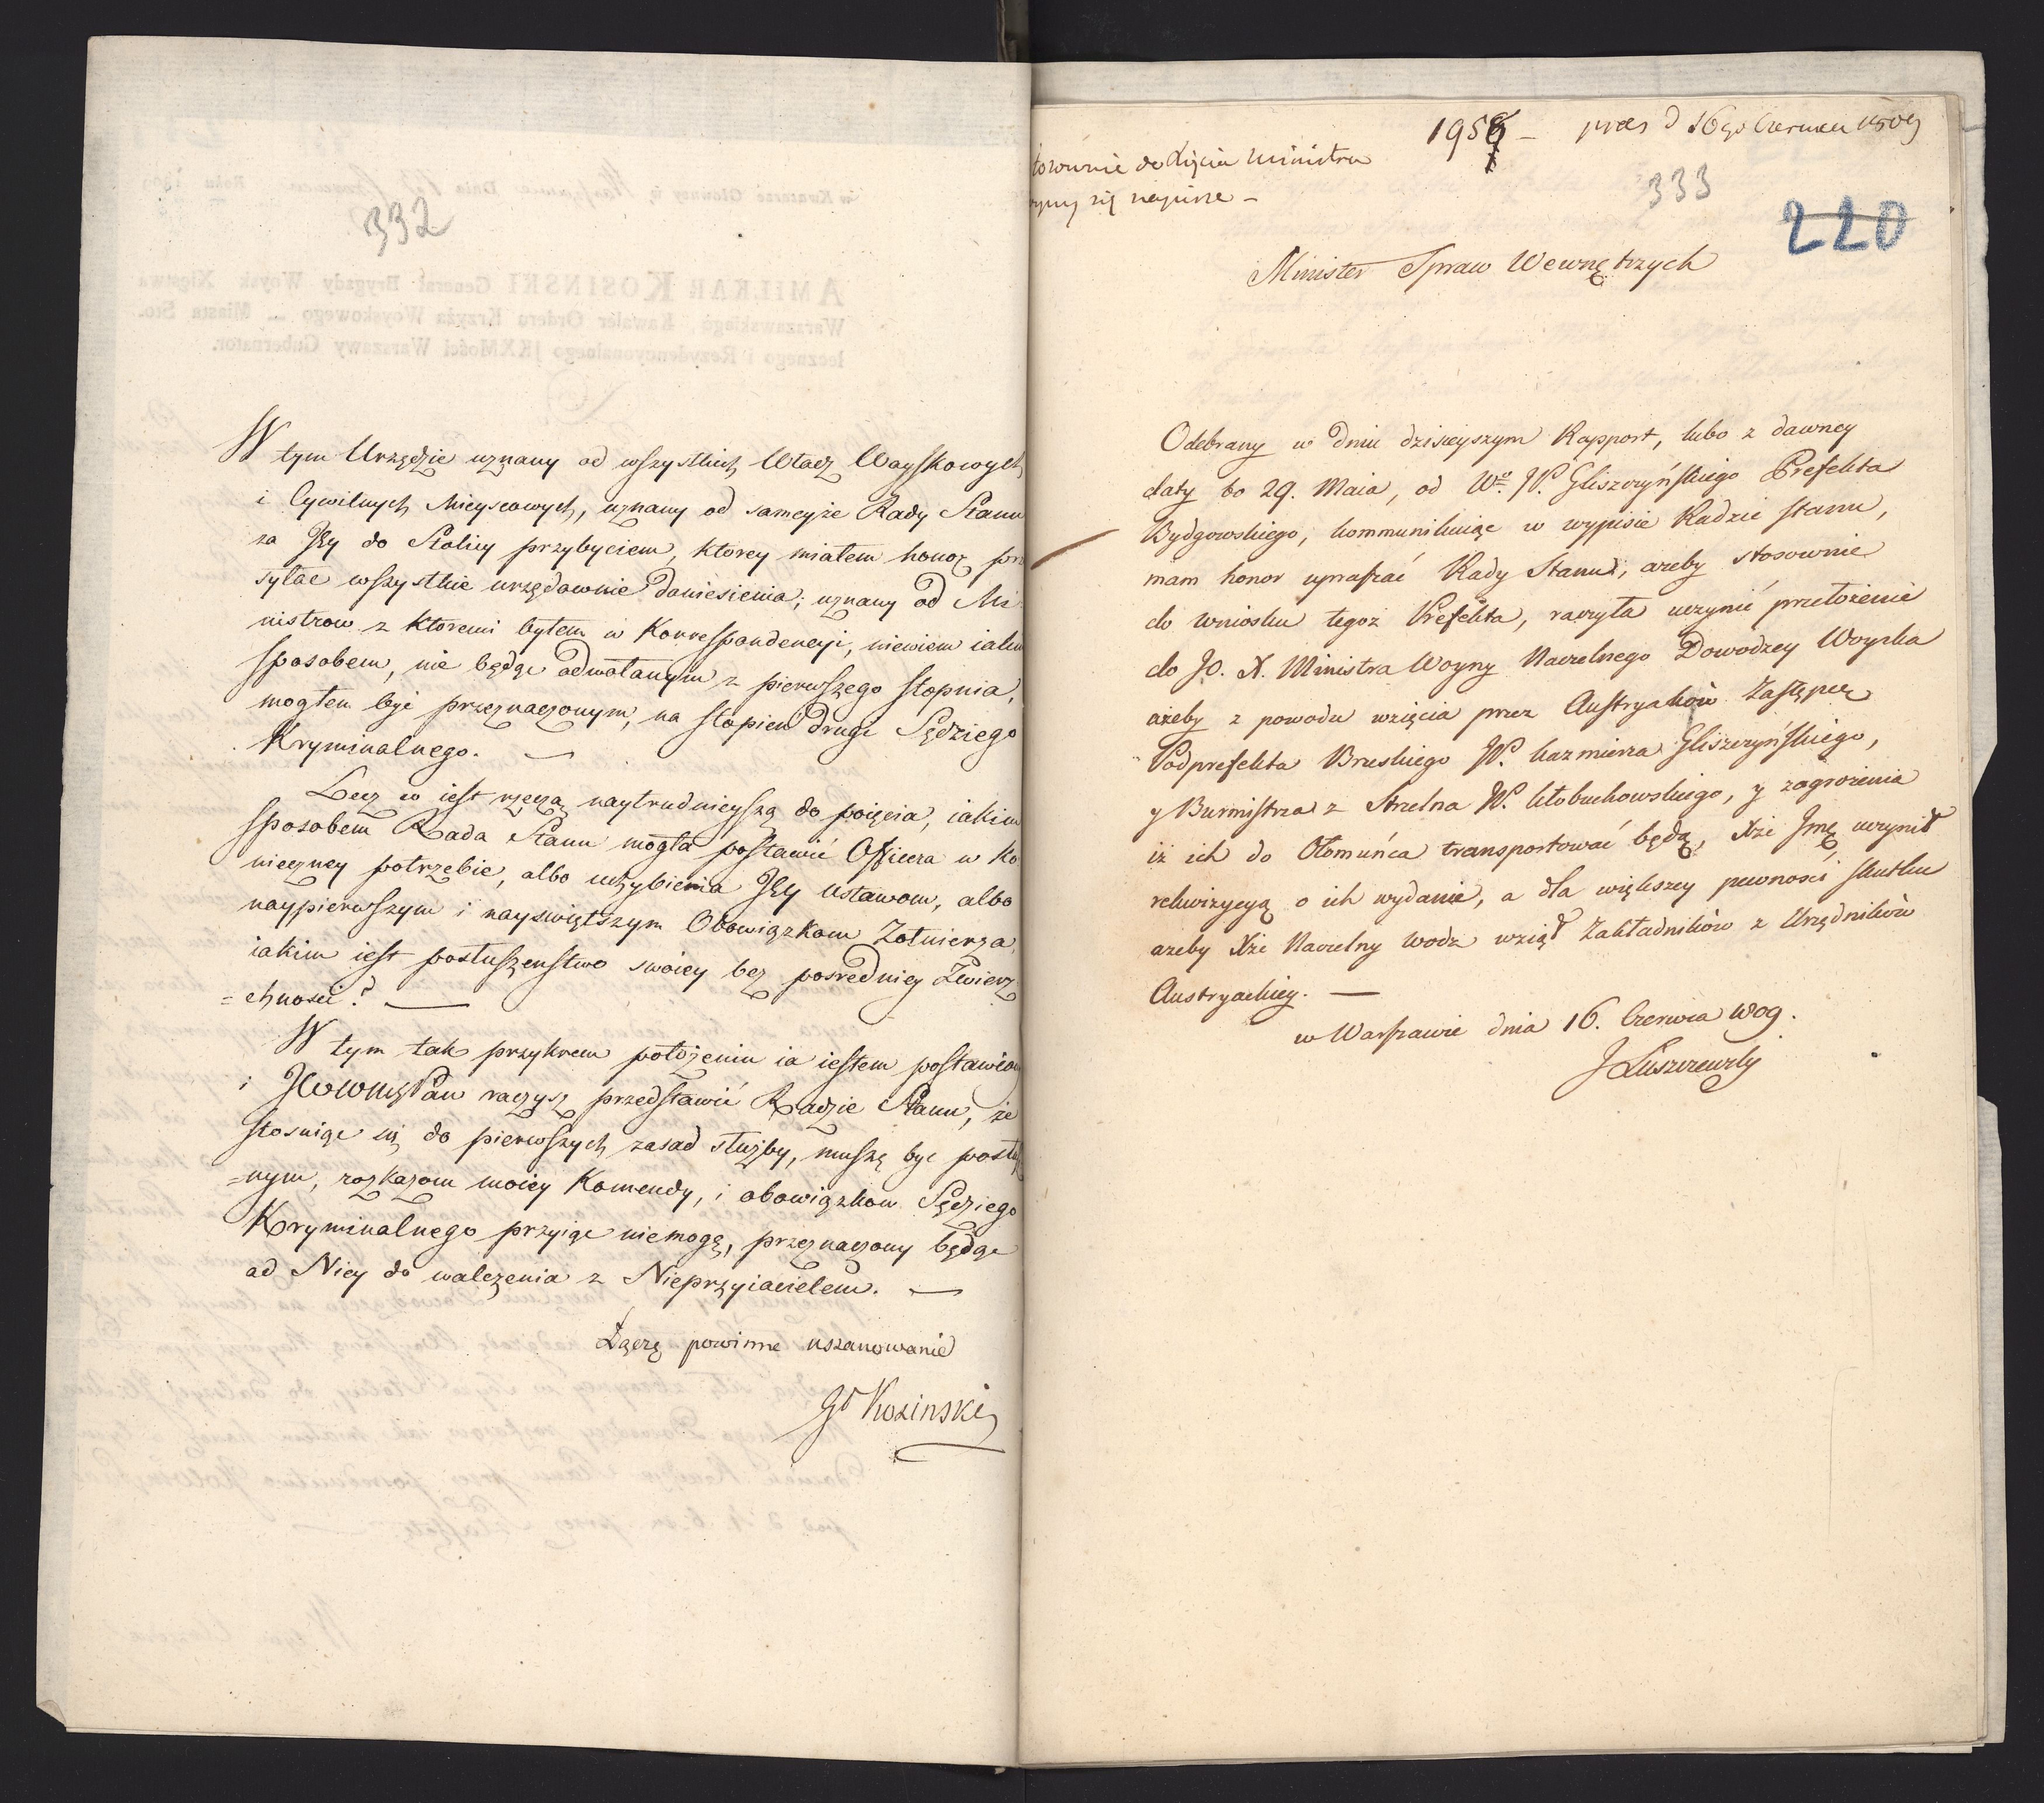 332
W tym Urzędzie uznany od wszystkich Władz Woyskowych
i Cywilnych Mieyscowych, uznany od sameyże Rady Stanu
za Jey do Stolicy przybyciem, ktorey miałem honor prze
syłac wszystkie urzędownie Doniesienia; uznany od Mi
nistrow z ktoremi byłem w Korrespondencyi, niewiem iakim
sposobem, nie będąc odwołanym z pierwszego stopnia,
mogłem być przeznaczonym, na stopień drugi Sędziego
Kryminalnego. —
Lecz co iest rzeczą naytrudnieyszą do poięcia, iakim
sposobem Rada Stanu mogła postawić Officera w Ko
nieczney potrzebie, albo uchybienia Jey ustawom, albo
naypierwszym i nayswiętszym Obowiązkom Zołnierza
iakim iest posłuszenstwo swoiey bez posredniey Zwierz
=chnosci? —
W tym tak przykrem położeniu ia iestem postawiony
i JWWMsPan raczysz przedstawić Radzie Stanu, że
stosuiąc się do pierwszych zasad służby, muszę byc posłusz
=nym, rozkazom moiey Komendy, i obowiązkow Sędziego
Kryminalnego przyiąc niemogę, przeznaczony będąc
od Niey do walczenia z Nieprzyiacielem. —
Łączę powinne uszanowanie
Gł Kosinski
195 — prez d 16go Czerwca 1809
tosownie do życia Ministra
się napisze —
333
220
Minister Spraw Wewnętrzych
Odebrany w dniu dzisieyszym Rapport, lubo z dawney
daty bo 29. Maia, od Wo. JP. Gliszczyńskiego Prefekta
Bydgowskiego, kommunikuiąc w wypisie Radzie stanu,
mam honor upraszać Rady Stanu, ażeby stosownie
do wniosku tegoż Prefekta, raczyła uczynić przełożenie
do JO. X. Ministra Woyny Naczelnego Dowodzcy Woyska
ażeby z powodu wzięcia przez Austryaków Zastępcę
Podprefekta Brzeskiego JP. Kazmierza Gliszczyńskiego,
y Burmistrza z Strzelna JP. Kłobuchowskiego, y zagrożenia
iż ich do Ołomuńca transportować będą, Xże Jmę uczynił
rekwizycyą o ich wydanie, a dla większey pewności skutku
ażeby Xże Naczelny Wodz wziął Zakładników z Urzędników
Austryackiey. —
w Warszawie dnia 16. Czerwca 1809.
J Łuszczewsky